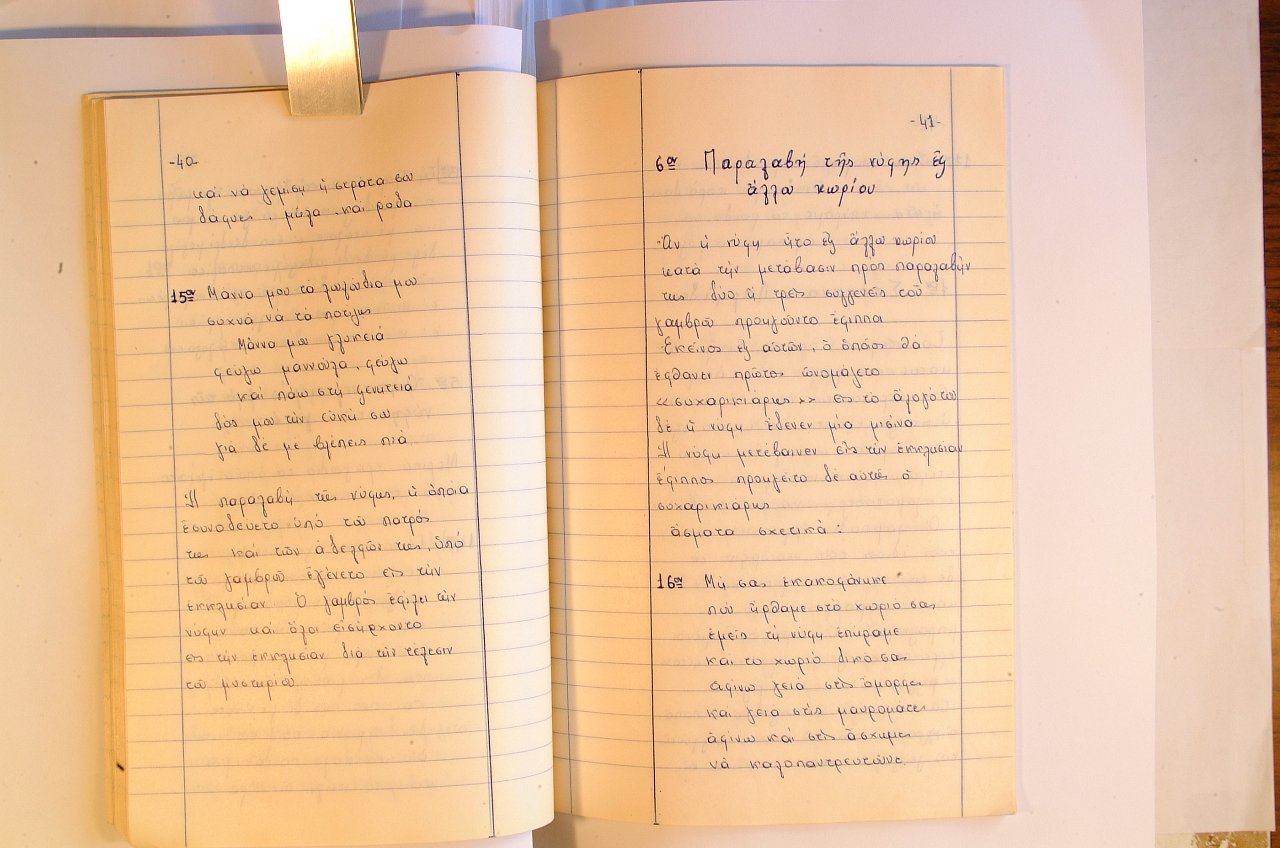 -40-
καί νά γεμίση ἡ στράτα σου
δάφνες, μῆλα καί ρόδα
15ον Μάννα μου τά λουλούδια μου
συχνά νά τά ποτίζης
Μάννα μου γλυκειά
φεύγω μαννούλα, φεύγω
καί πάω στή ξενητειά
δός μου τήν εὐχή σου
γιά δέ με βλέπεις πιά
Ἡ παραλαβή τῆς νύφης, ἡ ὁποία
ἐσυνοδεύετο ὑπό τοῦ πατρός
της καί τῶν ἀδελφῶν της, ὑπό
τοῦ γαμβροῦ ἐγένετο εἰς τήν
ἐκκλησίαν. Ὁ γαμβρός ἐφίλει τήν
νύφην καί ὅλοι εἰσήρχοντο
εἰς τήν ἐκκλησίαν διά τήν τέλεσιν
τοῦ μυστηρίου.
-41-
6ον Παραλαβή τῆς νύφης ἐξ
ἄλλου χωρίου
Ἄν ἡ νύφη ἦτο ἐξ ἄλλου χωρίου
κατά τήν μετάβασιν πρός παραλαβήν
της δύο ἤ τρεῖς συγγενεῖς τοῦ
γαμβροῦ προηγοῦντο ἔφιπποι
Ἐκεῖνος ἐξ αὐτῶν, ὁ ὁποῖος θά
ἔφθανεν πρῶτος ὠνομάζετο
«συχαρικιάρης» εἰς τό ἄλογό του
δέ ἡ νύφη ἔδενεν μία
Ἡ νύφη μετέβαινεν εἰς τήν ἐκκλησίαν
ἔφιππος προηγεῖτο δέ αὐτῆς ὁ
συχαρικιάρης
ἄσματα σχετικά:
16ον Μή σας ἐκακοφάνηκε
πού ἤρθαμε στό χωριό σας
ἐμεῖς τή νύφη ἐπήραμε
καί τό χωριό δικό σας
ἀφίνω γειά στίς ὄμορφες
καί γειά στίς μαυρομάτες
ἀφίνω καί στίς ἄσχημες
νά καλοπαντρευτοῦνε.